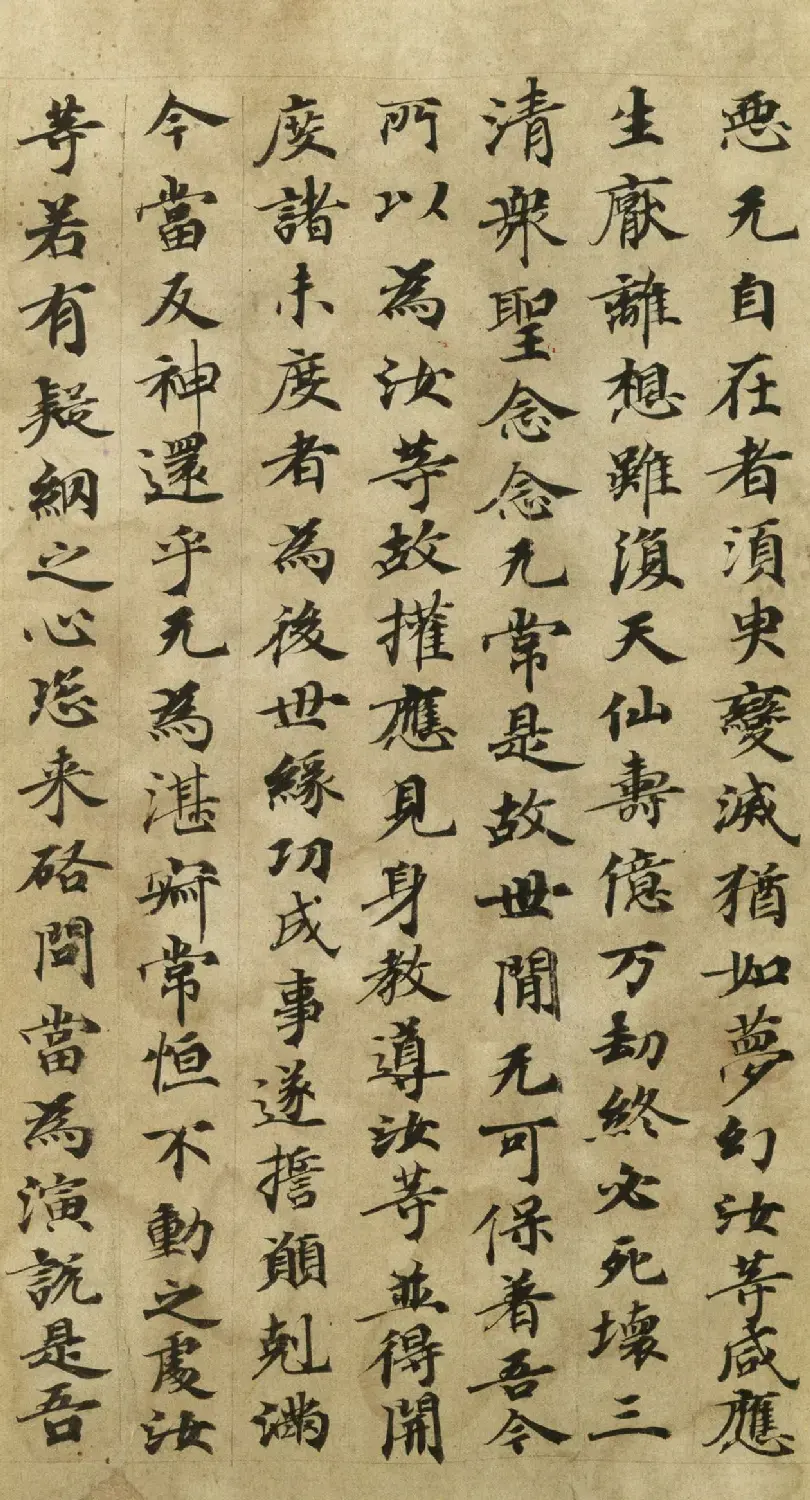 悉无自在者須臾變滅猶如夢幻汝等咸應
生厭離想雖復天仙壽億万劫終必死壞三
清衆聖念念无常是故世間无可保着吾今
所以為汝等故權應見身教導汝等並得開
度諸未度者為後世緣功成事遂誓願剋滿
今當反神還乎无為湛寂常恒不動之處汝
等若有疑網之心恣来咨問當為演說是吾